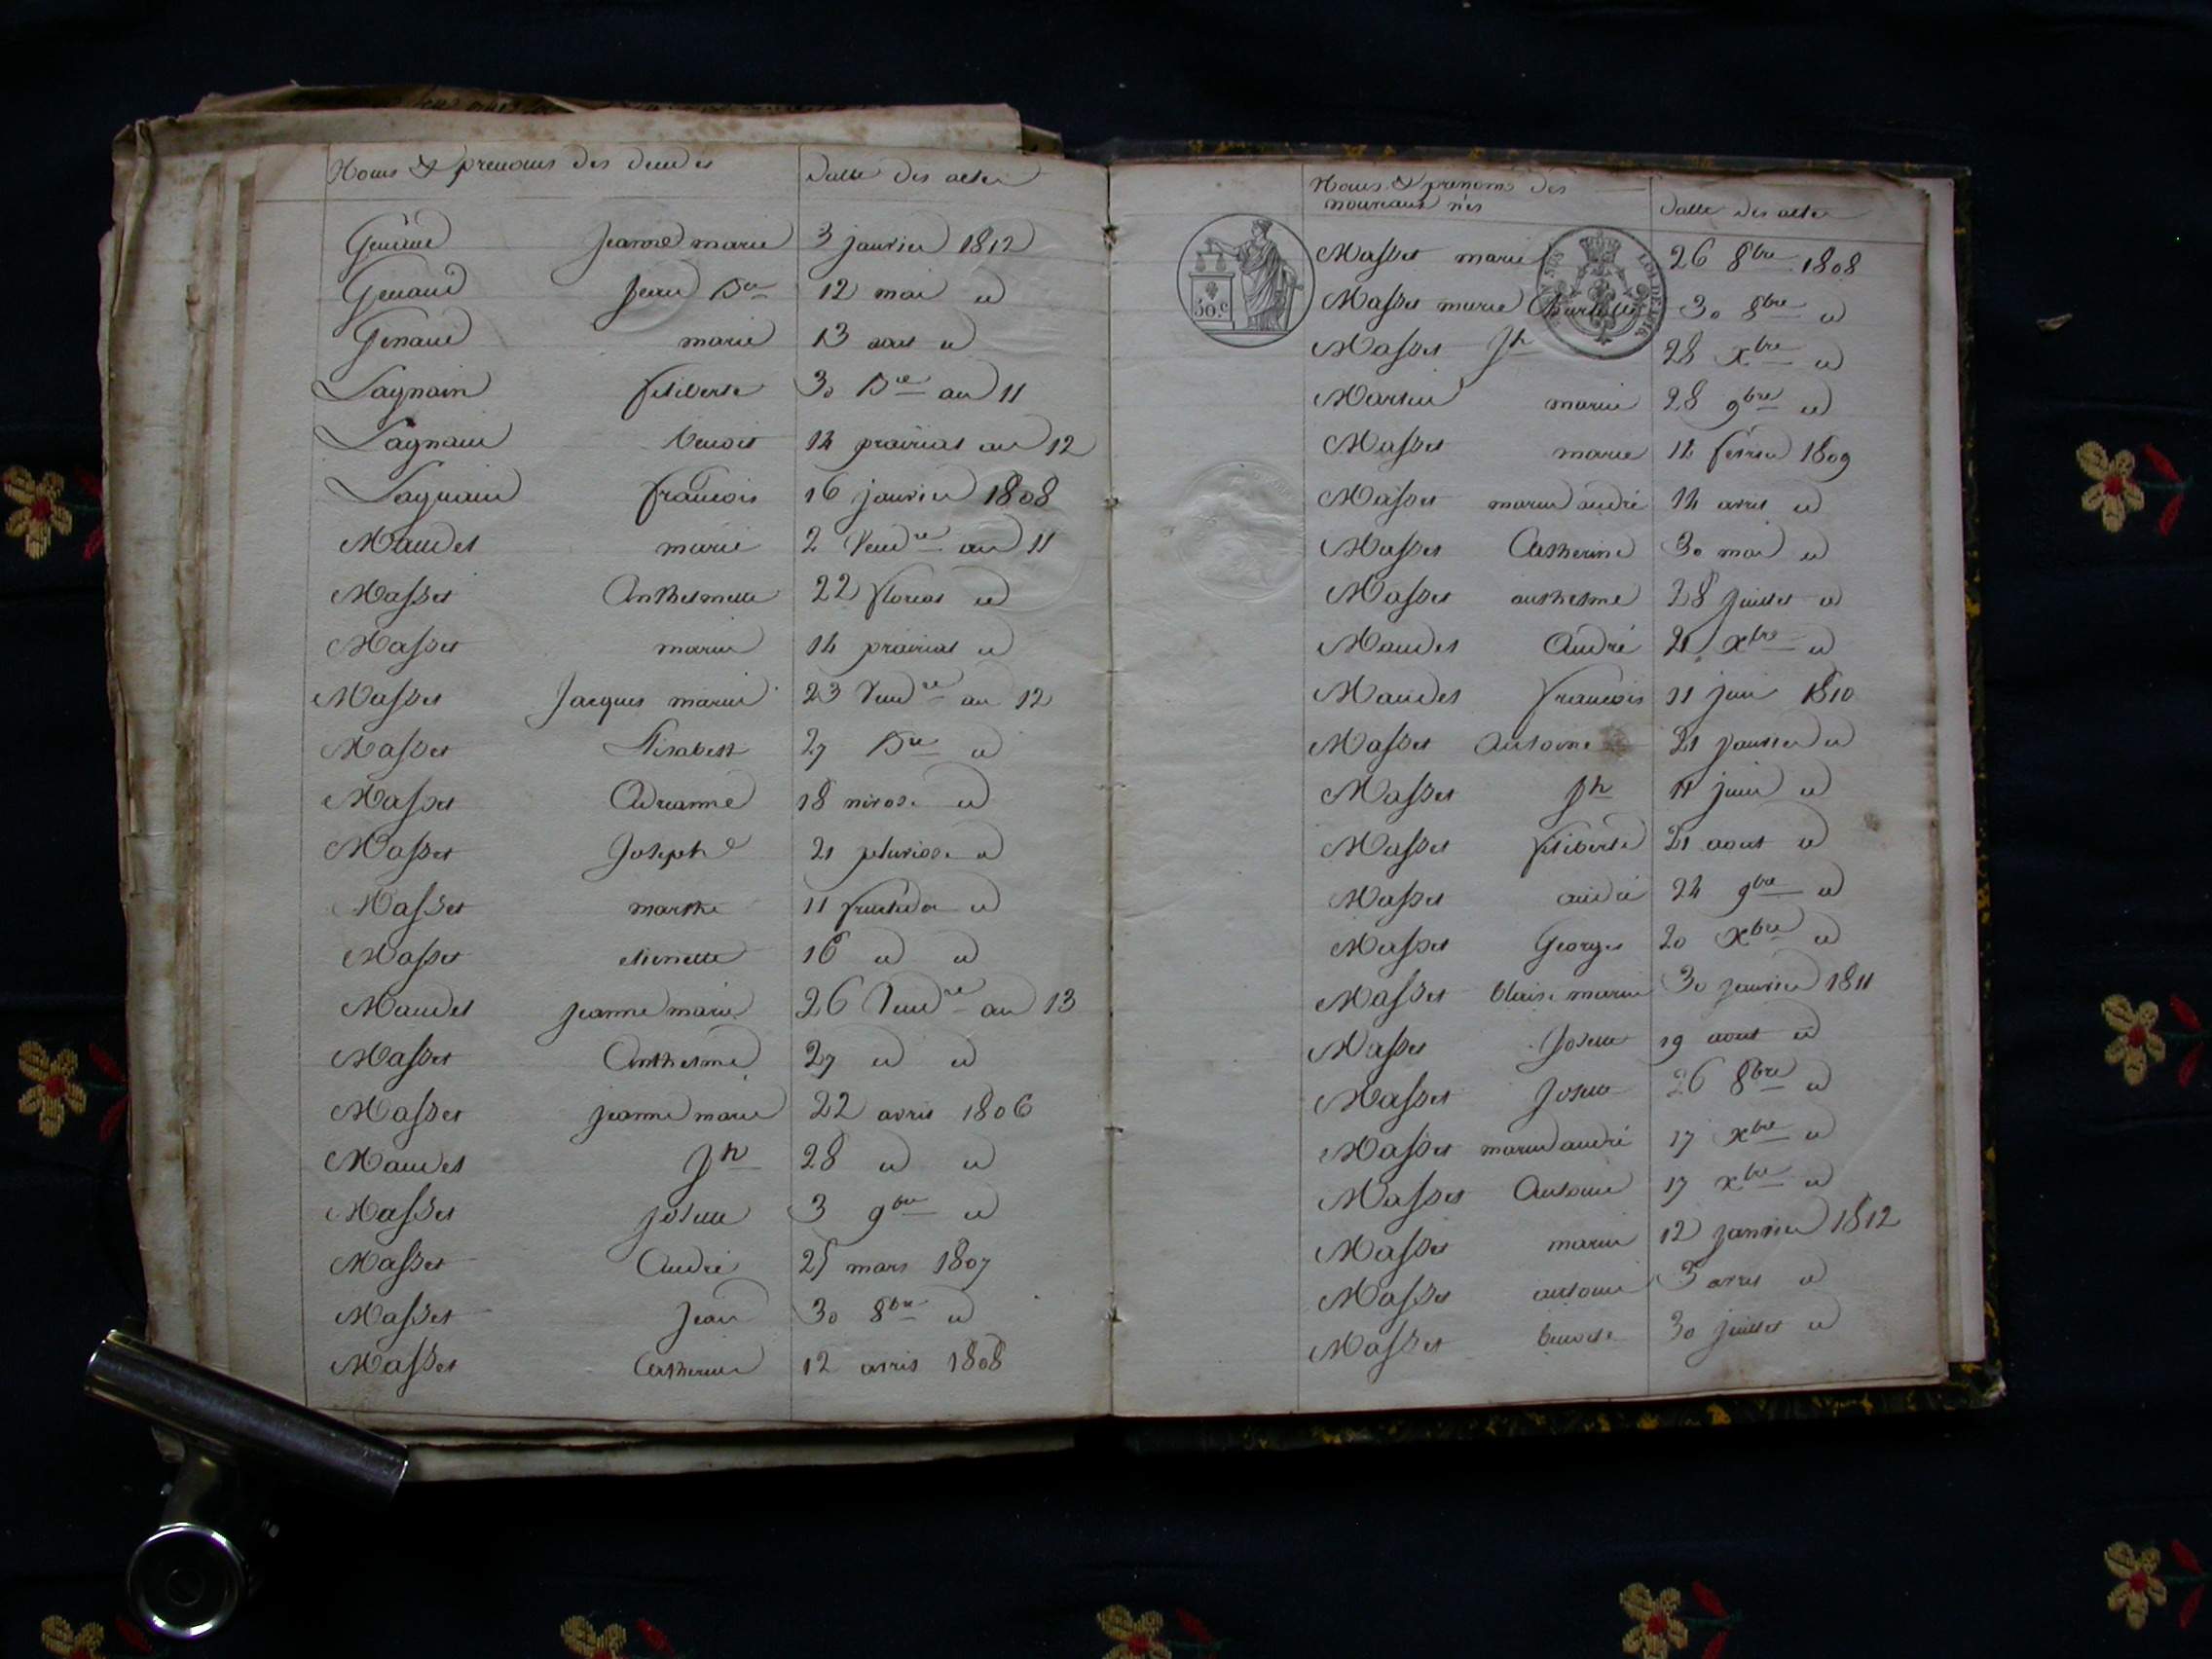 Noms & prenoms des
Datte des actes
Genaud Jeanne marie 3 janvier 1812
Genaud Jean Bte 12 mai id
Genaud marie 13 aout id
Lagnain filiberte 30 Bre an 11
Lagnain benoit 14 prairial an 12
Lagnain francois 16 janvier 1808
Maudet marie 2 Vendre an 11
Masset Anthelmette 22 floreal id
Masset marie 14 prairial id
Masset Jacques marie 23 Vendre an 12
Masset Elisabeth 27 Bre id
Masset Adrianne 18 nivose id
Masset Joseph 21 pluviose id
Masset marthe 11 fructidor id
Masset etiennette 16 id id
Maudet jeanne marie 26 Vendre an 13
Masset Anthelme 27 id id
Masset jeanne marie 22 avril 1806
Maudet Jh 28 id id
Masset josette 3 9bre id
Masset André 25 mars 1807
Masset Jean 30 8bre id
Masset Catherine 12 avril 1808
Noms & prenoms des
nouveaux nés
Datte des actes
50.c
LOI DE 1816
Masset marie 26 8bre 1808
Masset marie 30 8bre id
Masset Jh 28 Xbre id
Martin marie 28 9bre id
Masset marie 12 fevrier 1809
Masset marie andré 14 avril id
Masset Catherine 30 mai id
Masset anthelme 28 juillet id
Maudet André 21 Xbre id
Maudet francois 11 juin 1810
Masset Antoine 21 janvier id
Masset Jh 11 juin id
Masset filiberte 21 aout id
Masset andré 24 9bre id
Masset Georges 20 Xbre id
Masset blaise marie 30 janvier 1811
Masset Josette 19 aout id
Masset Josette 26 8bre id
Masset marie andré 17 Xbre id
Masset Antoine 17 Xbre id
Masset marie 12 janvier 1812
Masset antoine 3 avril id
Masset benoite 30 juillet id